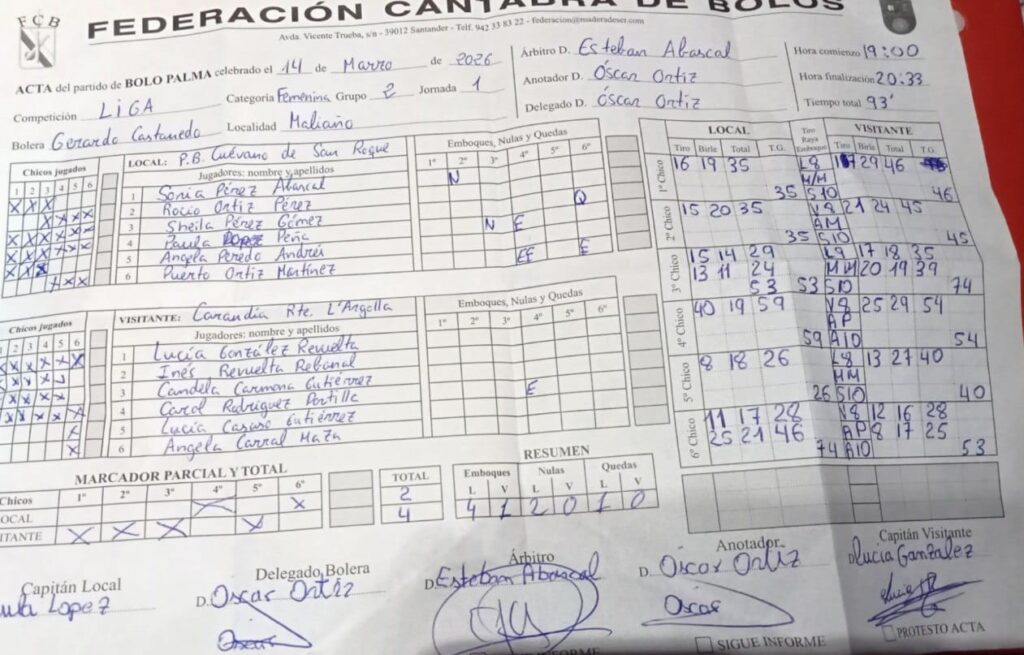 FCB
FEDERACIÓN CANTABRA DE BOLOS
Avda. Vicente Trueba, s/n - 39012 Santander - Telf. 942 33 83 22 - federacion@maderadeser.com
ACTA del partido de BOLO PALMA celebrado el 14 de Marzo de 2026
Competición LIGA Categoría Femenina Grupo 2 Jornada 1
Bolera Gerardo Castanedo Localidad Maliaño
Árbitro D. Esteban Abascal
Anotador D. Óscar Ortiz
Delegado D. Óscar Ortiz
Hora comienzo 19:00
Hora finalización 20:33
Tiempo total 93'
Chicos jugados
1 2 3 4 5 6
LOCAL: P.B. Cuévano de San Roque
Jugadores: nombre y apellidos
Emboques, Nulas y Quedas
1º 2º 3º 4º 5º 6º
1 Sonia Pérez Abascal N
2 Rocío Ortiz Pérez Q
3 Sheila Pérez Gómez N E
4 Paula López Peña
5 Angela Peredo Andrés EE E
6 Puerto Ortiz Martínez
Chicos jugados
1 2 3 4 5 6
VISITANTE: Carandia Rte. L'Argolla
Jugadores: nombre y apellidos
Emboques, Nulas y Quedas
1º 2º 3º 4º 5º 6º
1 Lucía González Revuelta
2 Inés Revuelta Rebanal
3 Candela Carmona Gutiérrez E
4 Carol Rodriguez Portilla
5 Lucía Casuso Gutiérrez
6 Angela Carral Maza
LOCAL Tiro Raya Emboque VISITANTE
Tiro Birle Total T.G. Tiro Birle Total T.G.
1º Chico 16 19 35 L8 17 29 46
M/M
35 S10 46
2º Chico 15 20 35 V8 21 24 45
AM
35 S10 45
3º Chico 15 14 29 L9 17 18 35
13 11 24 MM 20 19 39
53 53 S10 74
4º Chico 40 19 59 V8 25 29 54
AP
59 A10 54
5º Chico 8 18 26 L8 13 27 40
MM
26 S10 40
6º Chico 11 17 28 V8 12 16 28
25 21 46 AP 8 17 25
74 A10 53
MARCADOR PARCIAL Y TOTAL
Chicos 1º 2º 3º 4º 5º 6º TOTAL
OCAL X X 2
ITANTE X X X X 4
RESUMEN
Emboques Nulas Quedas
L V L V L V
4 1 2 0 1 0
Capitán Local
ula Lopez
Delegado Bolera
D. Oscar Ortiz
Oscar
Árbitro
D. Esteban Abascal
Anotador
D. Oscar Ortiz
Oscar
Capitán Visitante
D. Lucia González
SIGUE INFORME
PROTESTO ACTA